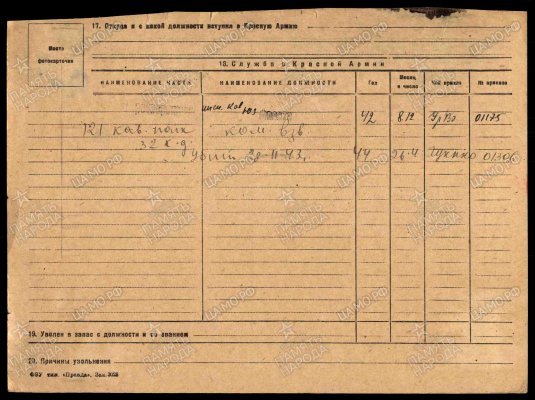 Место
фотокарточки
17. Откуда и с какой должности вступил в Красную Армию
18. Служба в Красной Армии
НАИМЕНОВАНИЕ ЧАСТИ НАИМЕНОВАНИЕ ДОЛЖНОСТИ Год Месяц и число Чей приказ № приказа
42 8.12 УрВО 01175
121 кав. полк ком. взв.
32 к.д.
убит 28-11-43г. 44 26.4 ГУК НКО
19. Уволен в запас с должности и по званием
20. Причины увольнения
ФВУ тип. «Правда», Зак.
ПАМЯТЬ НАРОДА
ЦАМО.РФ